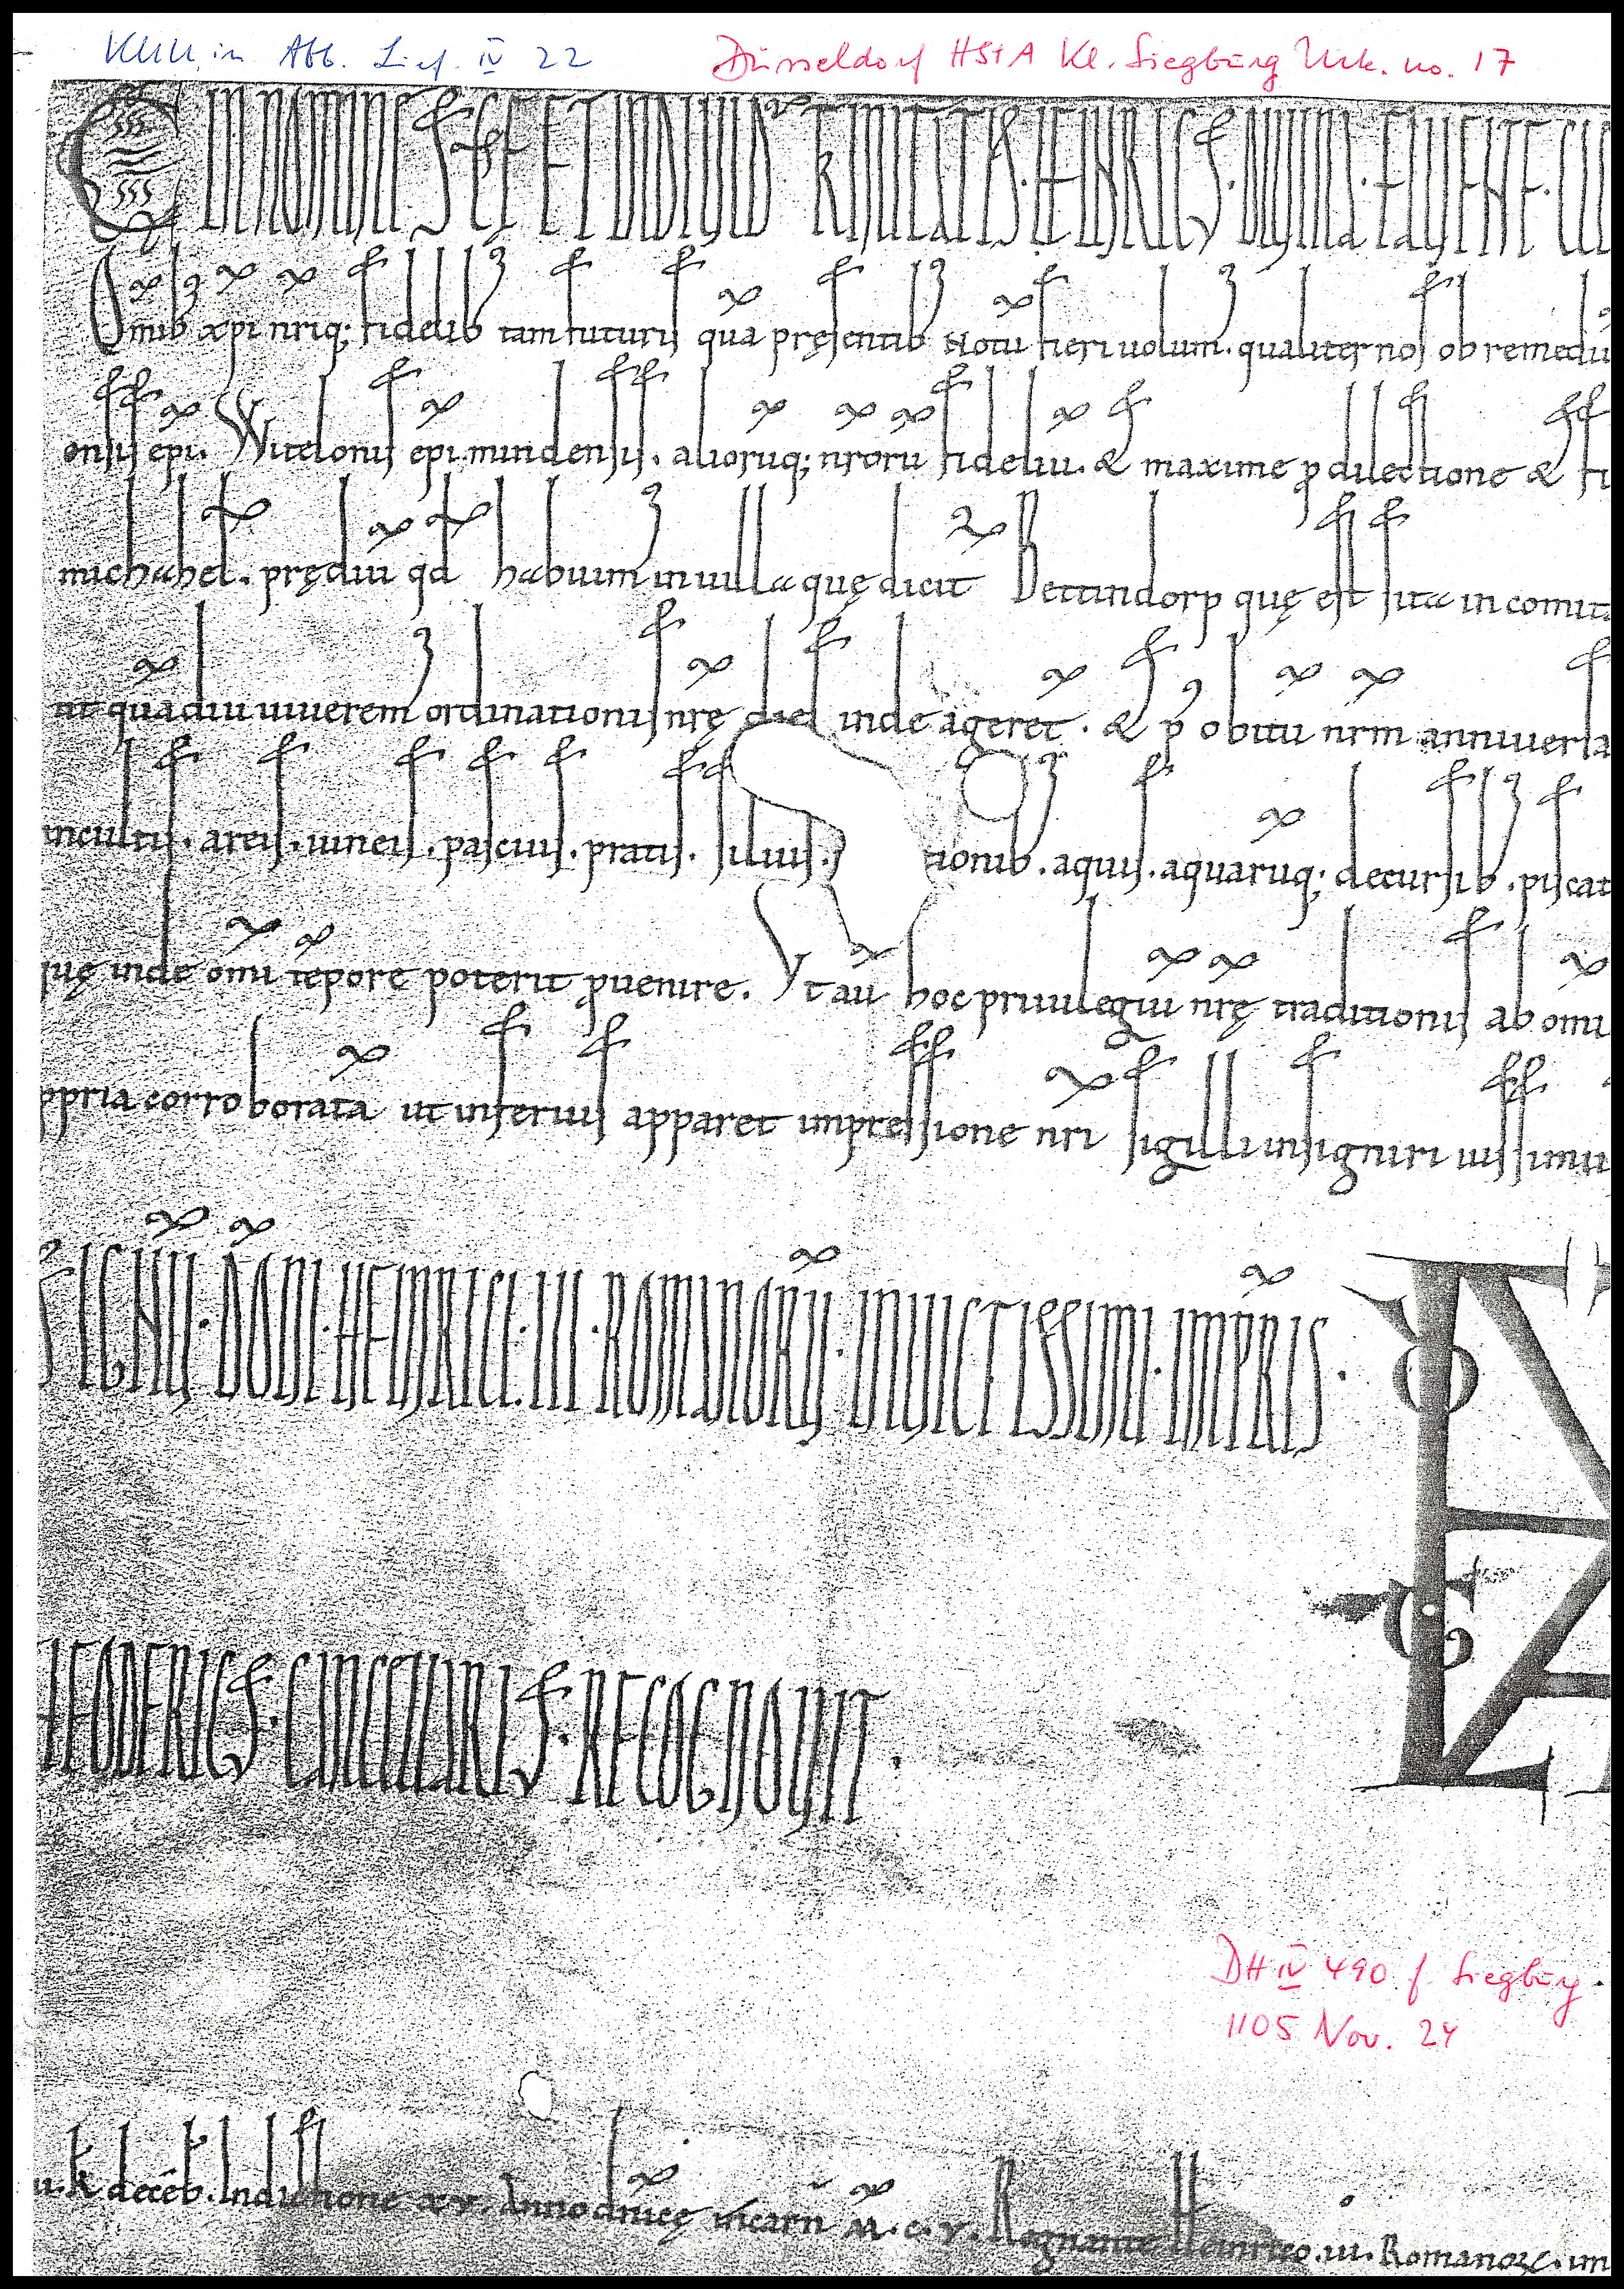 KUU in Abb. Lief. IV 22 Düsseldorf HStA Kl. Siegburg Urk. no. 17
IN NOMINE SCE ET INDIVIDUE TRINITATIS. HEINRICUS. DIVINA. FAVENTE. CLE
Omib xpi nriq; fidelib tam futuris qua presentib Notu fieri volum. qualiter nos ob remediu
onsis epi. Witelonis epi mindensis. alioruq; nroru fideliu. & maxime p dilectione & fi
michahel. prędiu qd habuim in uilla quę dicit Bettindorp quę est sita in comit
ut quadiu uiuerem ordinationis nrę dies inde ageret. & p obitu nrm anniuersa
incultis. areis. uineis. pascuis. pratis. siluis. tionib. aquis. aquaruq; decursib. piscat
quę inde omi tepore poterit puenire. Vt au hoc priuilegiu nrę traditionis ab omi
ppria corroborata ut inferius apparet impressione nri sigilli insigniri iussimu
SIGNU. DOMI. HEINRICI. III. ROMANORU. INVICTISSIMI. IMPRIS.
HEODERICUS. CANCELLARIUS. RECOGNOVIT.
DH IV 490 f. Siegburg.
1105 Nov. 24
u. k. deceb. Indictione xv. Anno dnicę incarn M. c. v. Regnante Heinrico. iii. Romanoꝝ. im